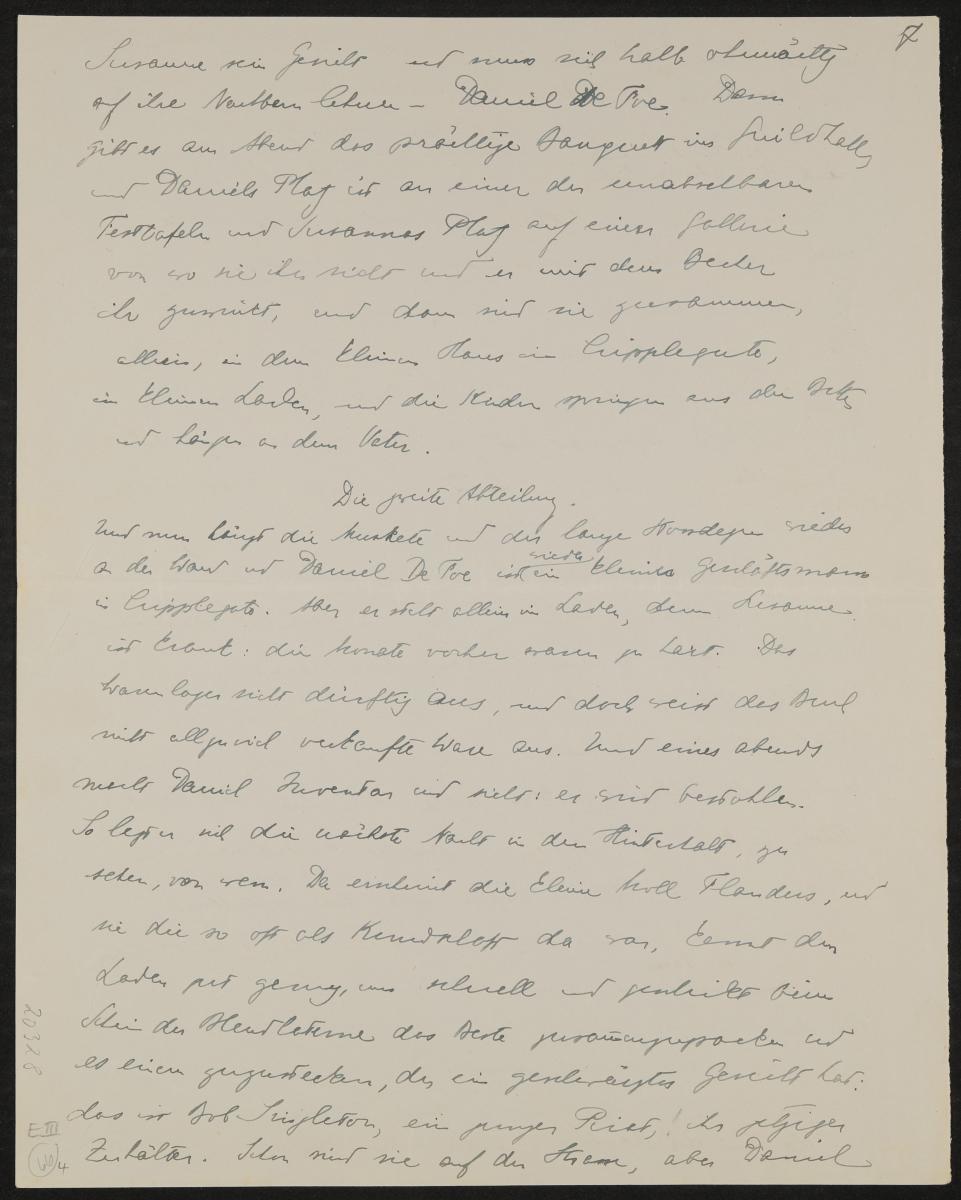 7
Susanne sein Gesicht und muss sich halb ohnmächtig
auf ihre Nachbarn lehnen – Daniel De Foe. Dann
gibt es am Abend das prächtige Banquett in Guildhall,
und Daniels Platz ist an einer der unabsehbaren
Festtafeln und Susannes Platz auf einer Gallerie
von wo sie ihn sieht und er mit dem Becher
ihr zuwinkt, und dann sind sie zusammen,
allein, in dem kleinen Haus in Cripplegate,
im kleinen Laden, und die Kinder springen aus den Betten
und hängen an dem Vater.
Die zweite Abteilung.
Und nun hängt die Muskete und der lange Stossdegen wieder
an der Wand und Daniel De Foe ist wieder ein kleiner Geschäftsmann
in Cripplegate. Aber er steht allein im Laden, denn Susanne
ist krank: die Monate vorher waren zu hart. Das
Warenlager sieht dürftig aus, und doch weist das Buch
nicht allzuviel verkaufte Ware aus. Und eines abends
macht Daniel Inventar und sieht: er wird bestohlen.
So legt er sich die nächste Nacht in den Hinterhalt, zu
sehen, von wem. Da erscheint die kleine Moll Flanders, und
sie die so oft als Kundschaft da war, kennt den
Laden gut genug, um schnell und geschickt beim
Schein der Blendlaterne das Beste zusammenzupacken und
es einem zuzustecken, der ein geschwärztes Gesicht hat:
das ist Bob Singleton, ein junger Pirat, ihr jetziger
Zuhälter. Schon sind sie auf der Strasse, aber Daniel
20328
E III
4